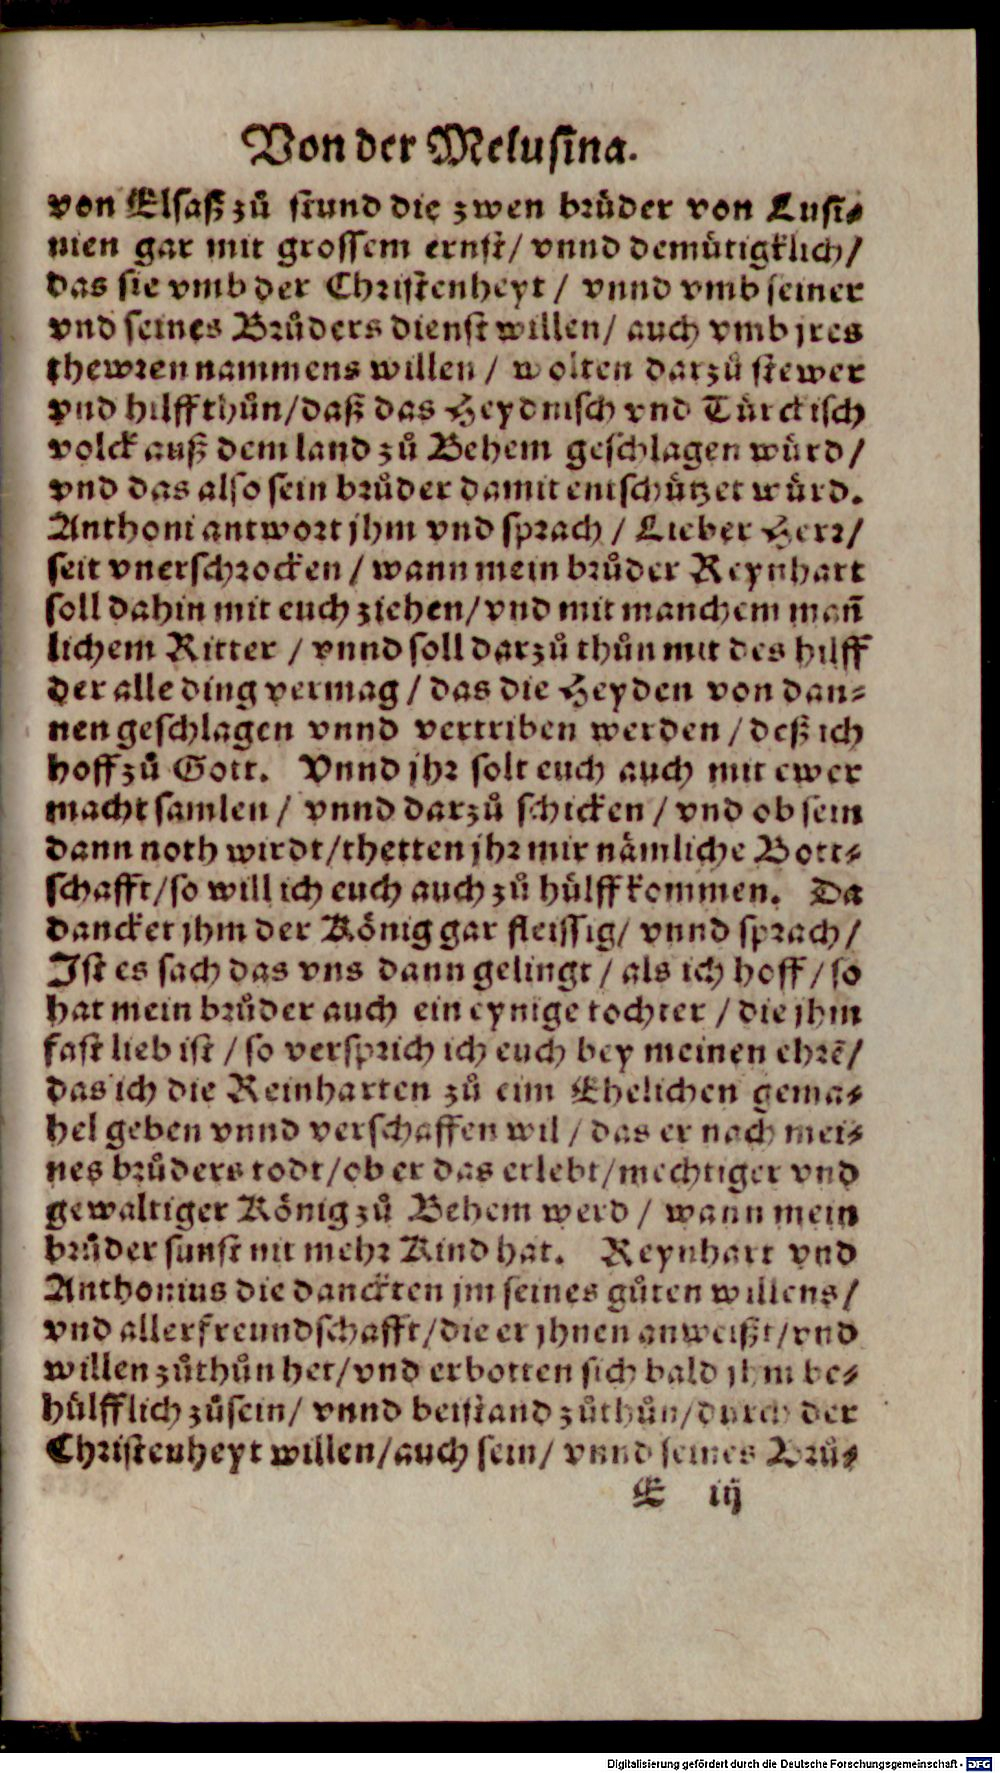 Von der Melusina.
von Elsaß zů stund die zwen brůder von Lusi⸗
nien gar mit grossem ernst/ vnnd demütigklich/
das sie vmb der Christenheyt / vnnd vmb seiner
vnd seines Brůders dienst willen/ auch vmb jres
thewren nammens willen / wolten darzů stewer
vnd hilff thůn/daß das Heydnisch vnd Türckisch
volck auß dem land zů Behem geschlagen würd/
vnd das also sein brůder damit entschützet würd.
Anthoni antwort jhm vnd sprach / Lieber Herr/
seit vnerschrocken / wann mein brůder Reynhart
soll dahin mit euch ziehen/vnd mit manchem man̄
lichem Ritter / vnnd soll darzů thůn mit des hilff
der alle ding vermag / das die Heyden von dan⸗
nen geschlagen vnnd vertriben werden / deß ich
hoff zů Gott. Vnnd jhr solt euch auch mit ewer
macht samlen / vnnd darzů schicken / vnd ob sein
dann noth wirdt/thetten jhr mir nämliche Bott⸗
schafft/so will ich euch auch zů hülff kommen. Da
dancket jhm der König gar fleissig/ vnnd sprach/
Ist es sach das vns dann gelingt / als ich hoff / so
hat mein brůder auch ein eynige tochter / die jhm
fast lieb ist / so versprich ich euch bey meinen ehrē/
das ich die Reinharten zů eim Ehelichen gema⸗
hel geben vnnd verschaffen wil / das er nach mei⸗
nes brůders todt/ob er das erlebt/mechtiger vnd
gewaltiger König zů Behem werd / wann mein
brůder sunst nit mehr Kind hat. Reynhart vnd
Anthonius die danckten jm seines gůten willens/
vnd allerfreundschafft/die er jhnen anweißt/vnd
willen zůthůn het/vnd erbotten sich bald jhm be⸗
hülfflich zůsein/ vnnd beistand zůthůn/durch der
Christenheyt willen/auch sein/ vnnd seines Brů⸗
E iij
Digitalisierung gefördert durch die Deutsche Forschungsgemeinschaft - DFG